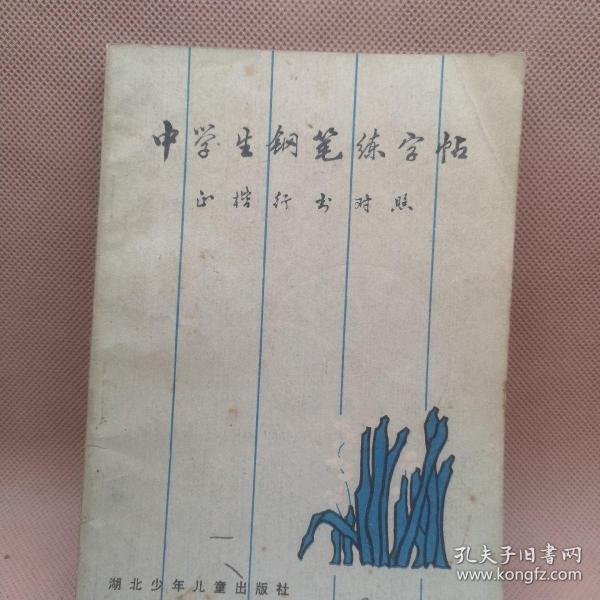 中学生钢笔练字帖
正楷行书对照
湖北少年儿童出版社
孔夫子旧书网
www.kongfz.com